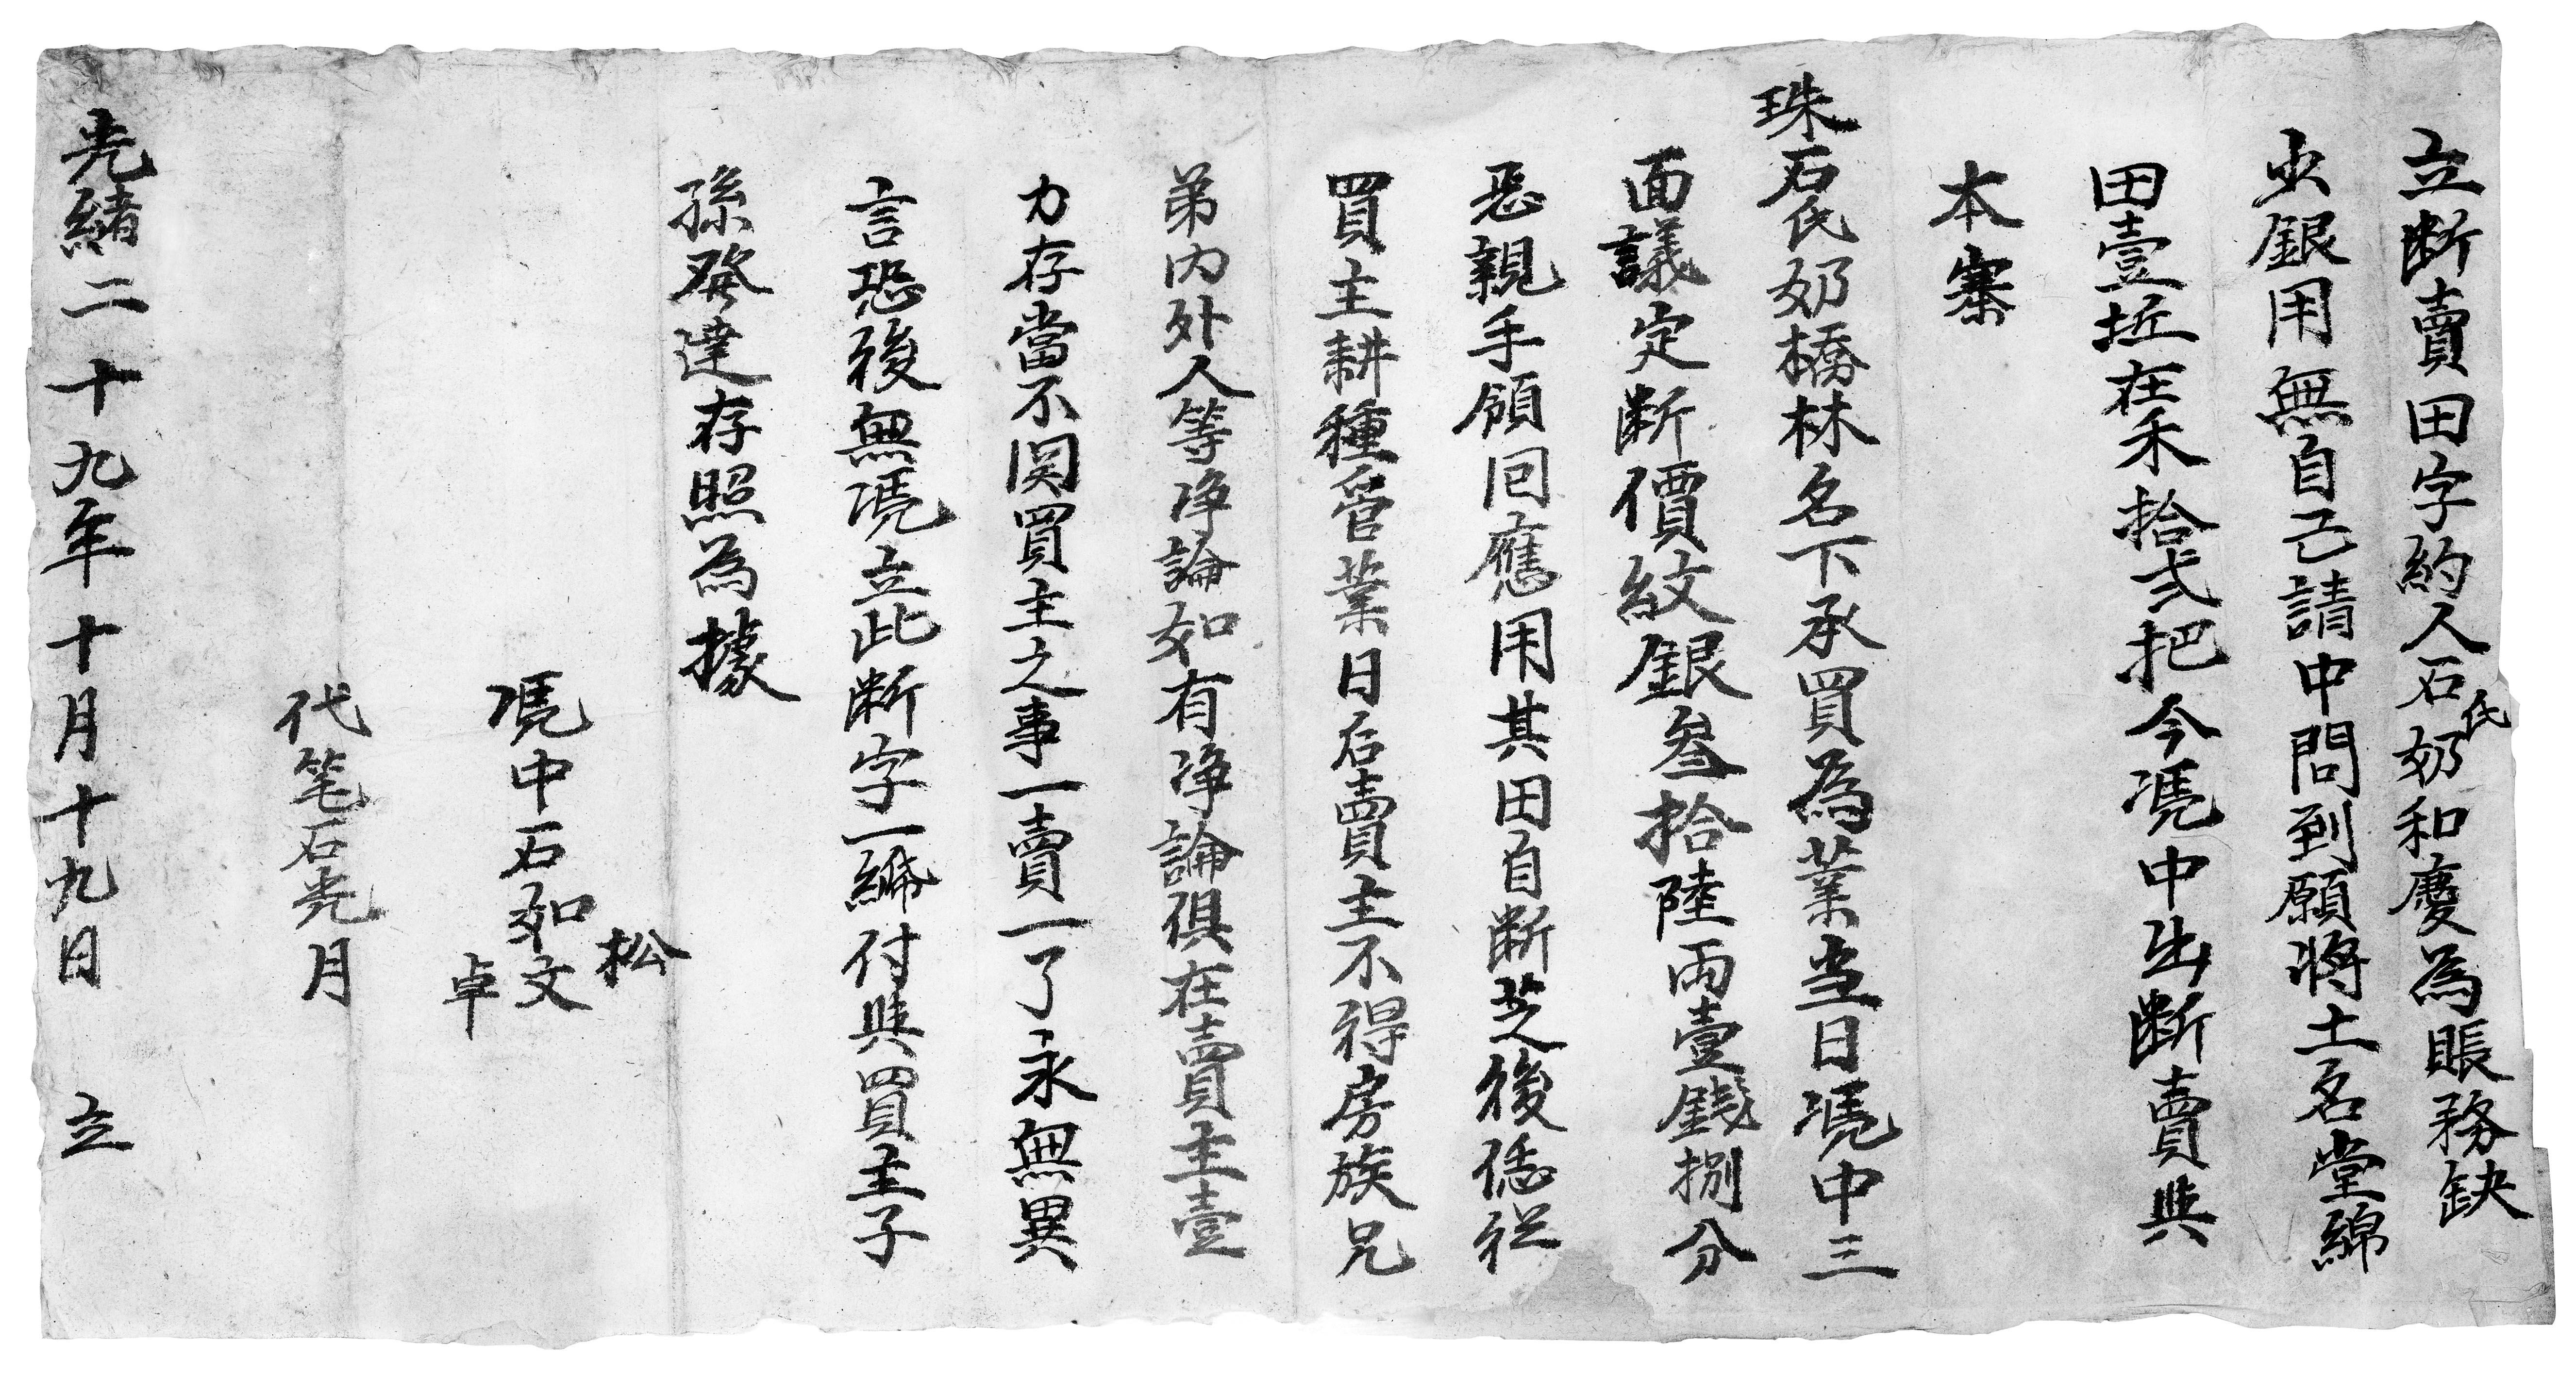 立断賣田字約人石氏奶和慶為賬務缺
少銀用無自己請中問到願將土名堂綿
田壹坵在禾拾弍把今凴中出断賣與
本寨
珠石氏奶橋林名下承買為業当日凴中三
面議定断價紋銀叁拾陸両壹錢捌分
恶親手領囘應用其田自断芝後恁從
買主耕種管業日后賣主不得房族兄
弟内外人等净論如有净論俱在賣主壹
力存當不関買主之事一賣一了永無異
言恐後無凴立此断字一綈付與買主子
孫發達存照為據
松
凴中石如文
卓
代笔石光月
光緒二十九年十月十九日 立